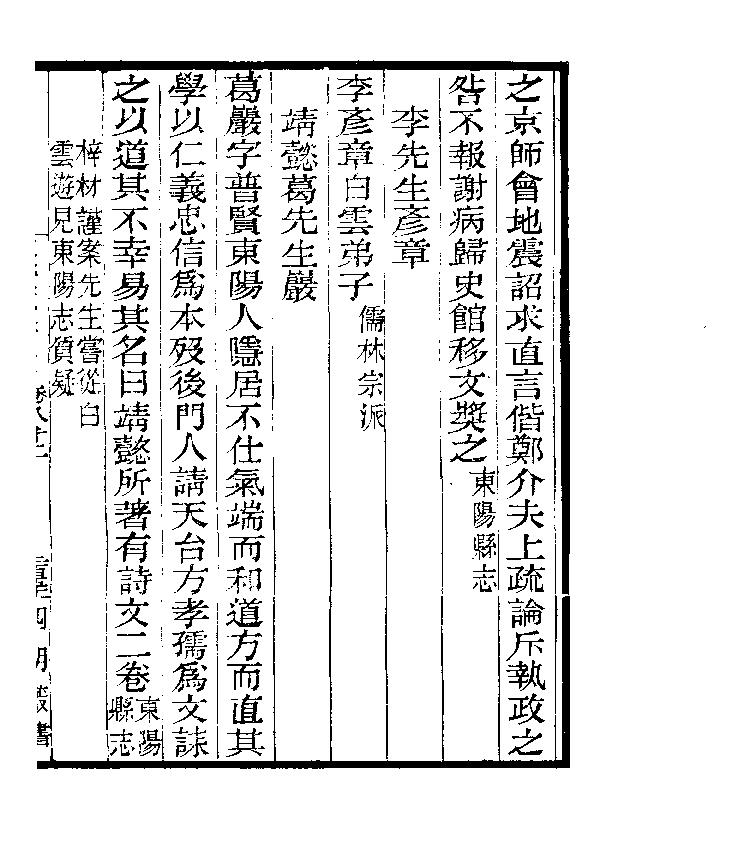 之京師會地震詔求直言偕鄭介夫上疏論斥執政之
咎不報謝病歸史館移文獎之東陽縣志
李先生彥章
李彥章白雲弟子儒林宗派
靖懿葛先生巖
葛巖字普賢東陽人隱居不仕氣端而和道方而直其
學以仁義忠信爲本歿後門人請天台方孝孺爲文誄
之以道其不幸易其名曰靖懿所著有詩文二卷東陽縣志
梓材謹案先生嘗從白
雲遊見東陽志質疑
卷八十二
四明叢書